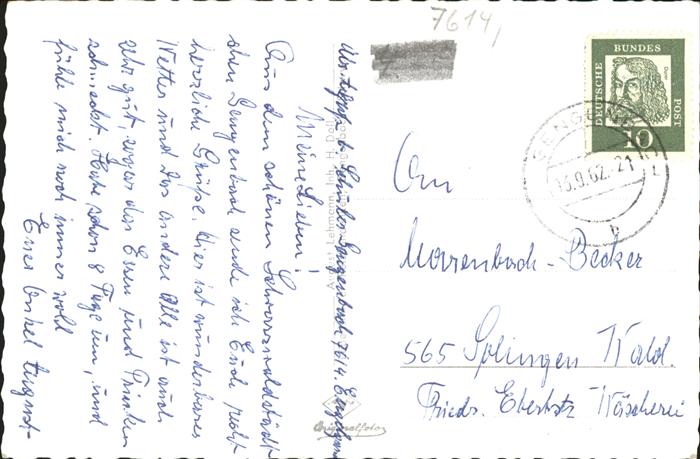 7614,
Meine Lieben!
Aus dem schönen Schwarzwaldstädt
chen Gengenbach sende ich Euch recht
herzliche Grüße. Hier ist wunderbares
Wetter und das andere Alle ist auch
sehr gut, sogar das Essen und Trinken
schmeckt. Habe schon 8 Tage um, und
fühle mich noch immer wohl
Euer Onkel August
Gengenbach 7614.
August Lehmann, Inh. H. Doll
Originalfoto
DEUTSCHE
BUNDES
POST
Dürer
10
13.9.62.-21
b
An
Morsenbach-Becker
565 Solingen Wald.
Friedr. Ebertstr Wäscherei